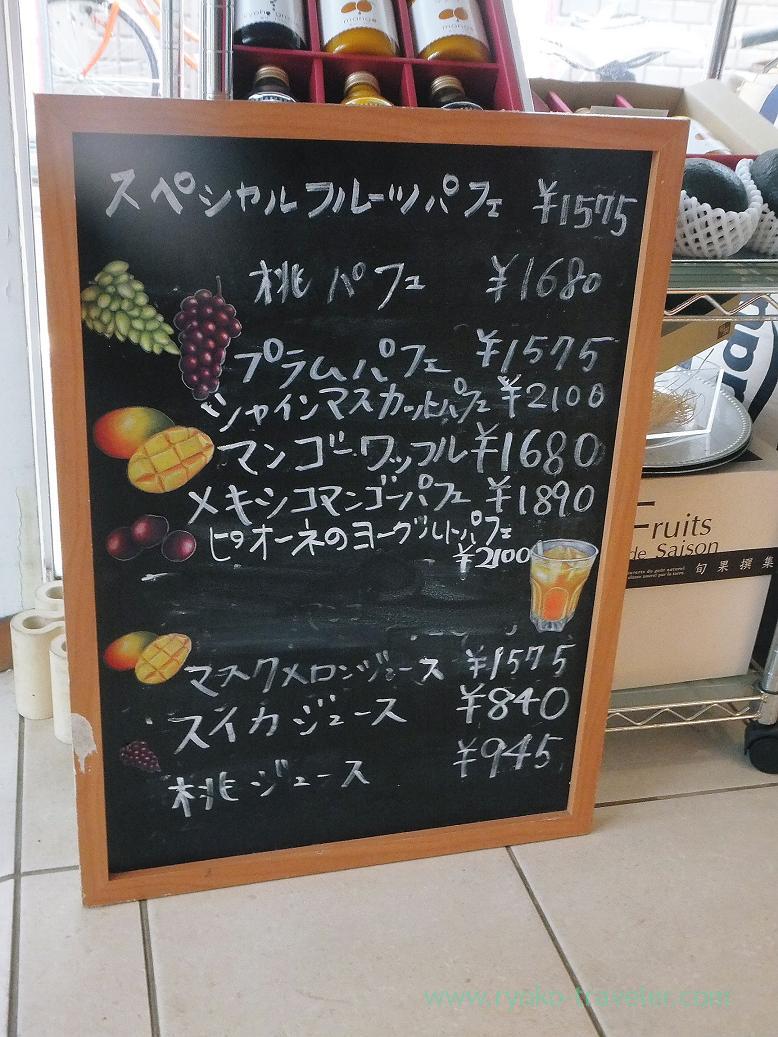 mango
mango
スペシャルフルーツパフェ ¥1575
桃パフェ ¥1680
プラムパフェ ¥1575
シャインマスカットパフェ ¥2100
マンゴーワッフル ¥1680
メキシコマンゴーパフェ ¥1890
ピオーネのヨーグルトパフェ
¥2100
マスクメロンジュース ¥1575
スイカジュース ¥840
桃ジュース ¥945
Fruits
de Saison
旬果撰集
www.ryoko-traveler.com